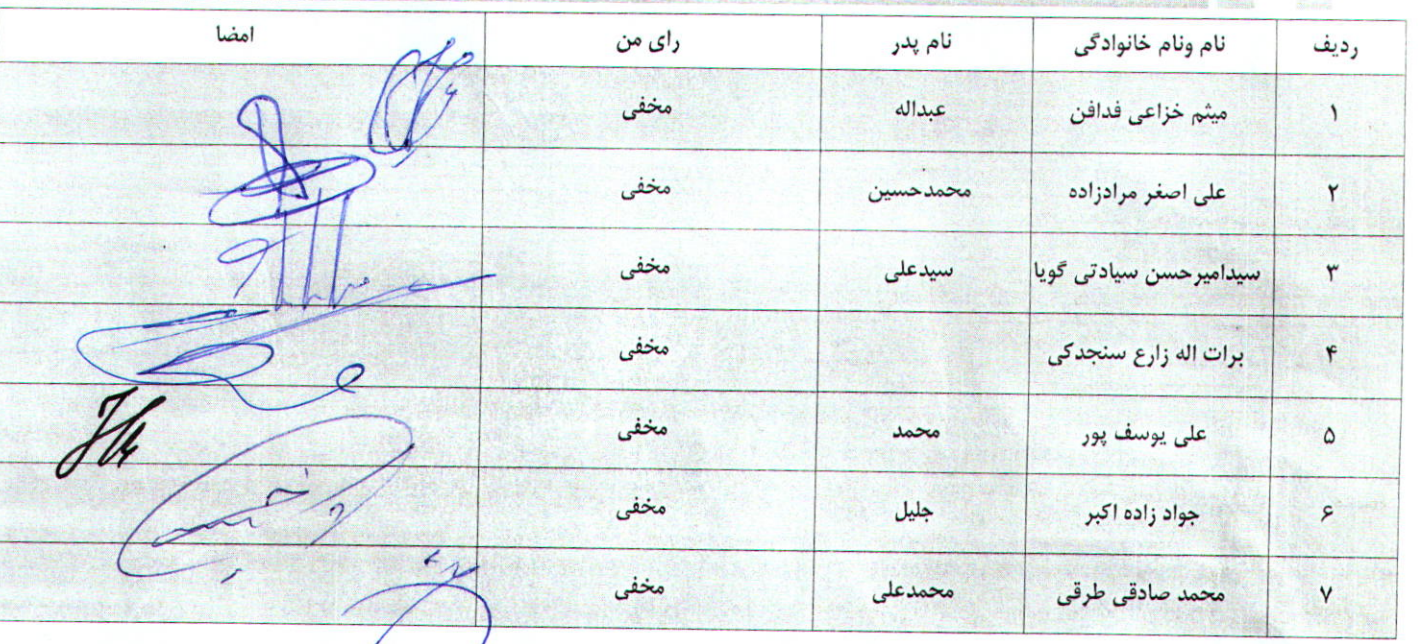 ردیف نام ونام خانوادگی نام پدر رای من امضا
۱ میثم خزاعی فدافن عبداله مخفی
۲ علی اصغر مرادزاده محمدحسین مخفی
۳ سیدامیرحسن سیادتی گویا سیدعلی مخفی
۴ برات اله زارع سنجدکی مخفی
۵ علی یوسف پور محمد مخفی
۶ جواد زاده اکبر جلیل مخفی
۷ محمد صادقی طرقی محمدعلی مخفی